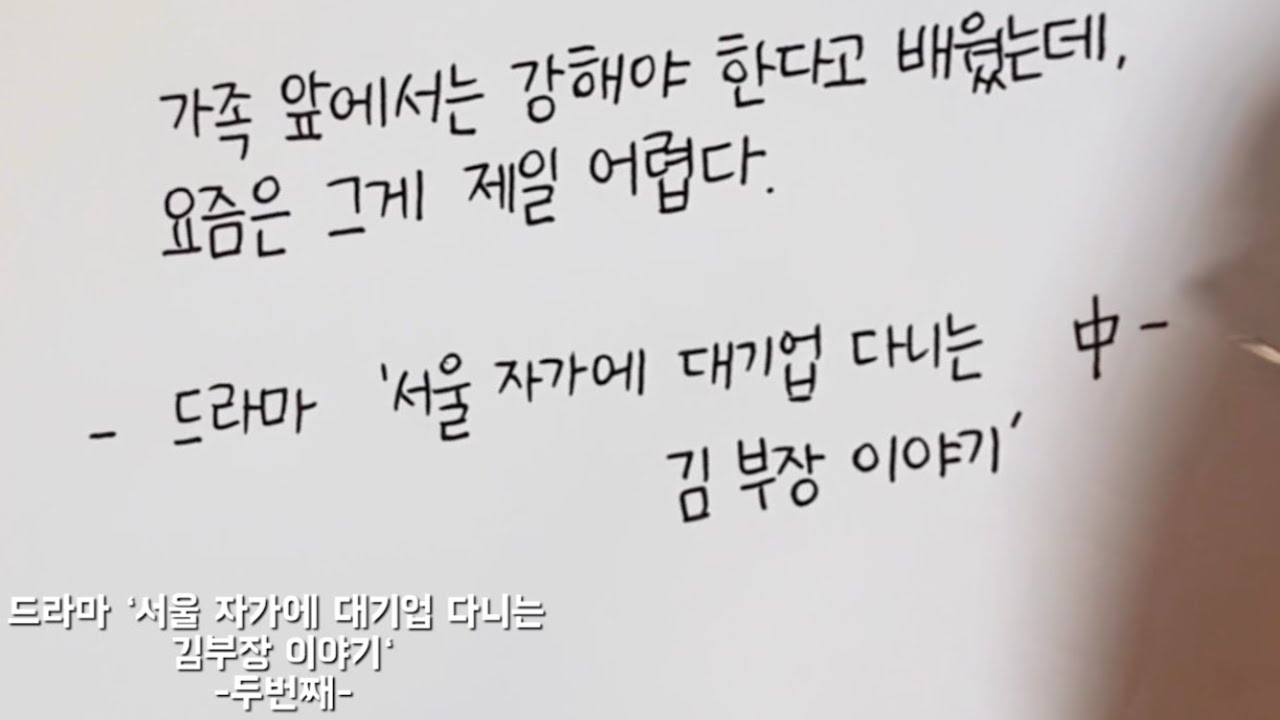 가족 앞에서는 강해야 한다고 배웠는데,
요즘은 그게 제일 어렵다.
- 드라마 '서울 자가에 대기업 다니는 中-
김 부장 이야기'
드라마 '서울 자가에 대기업 다니는
김부장 이야기'
-두번째-